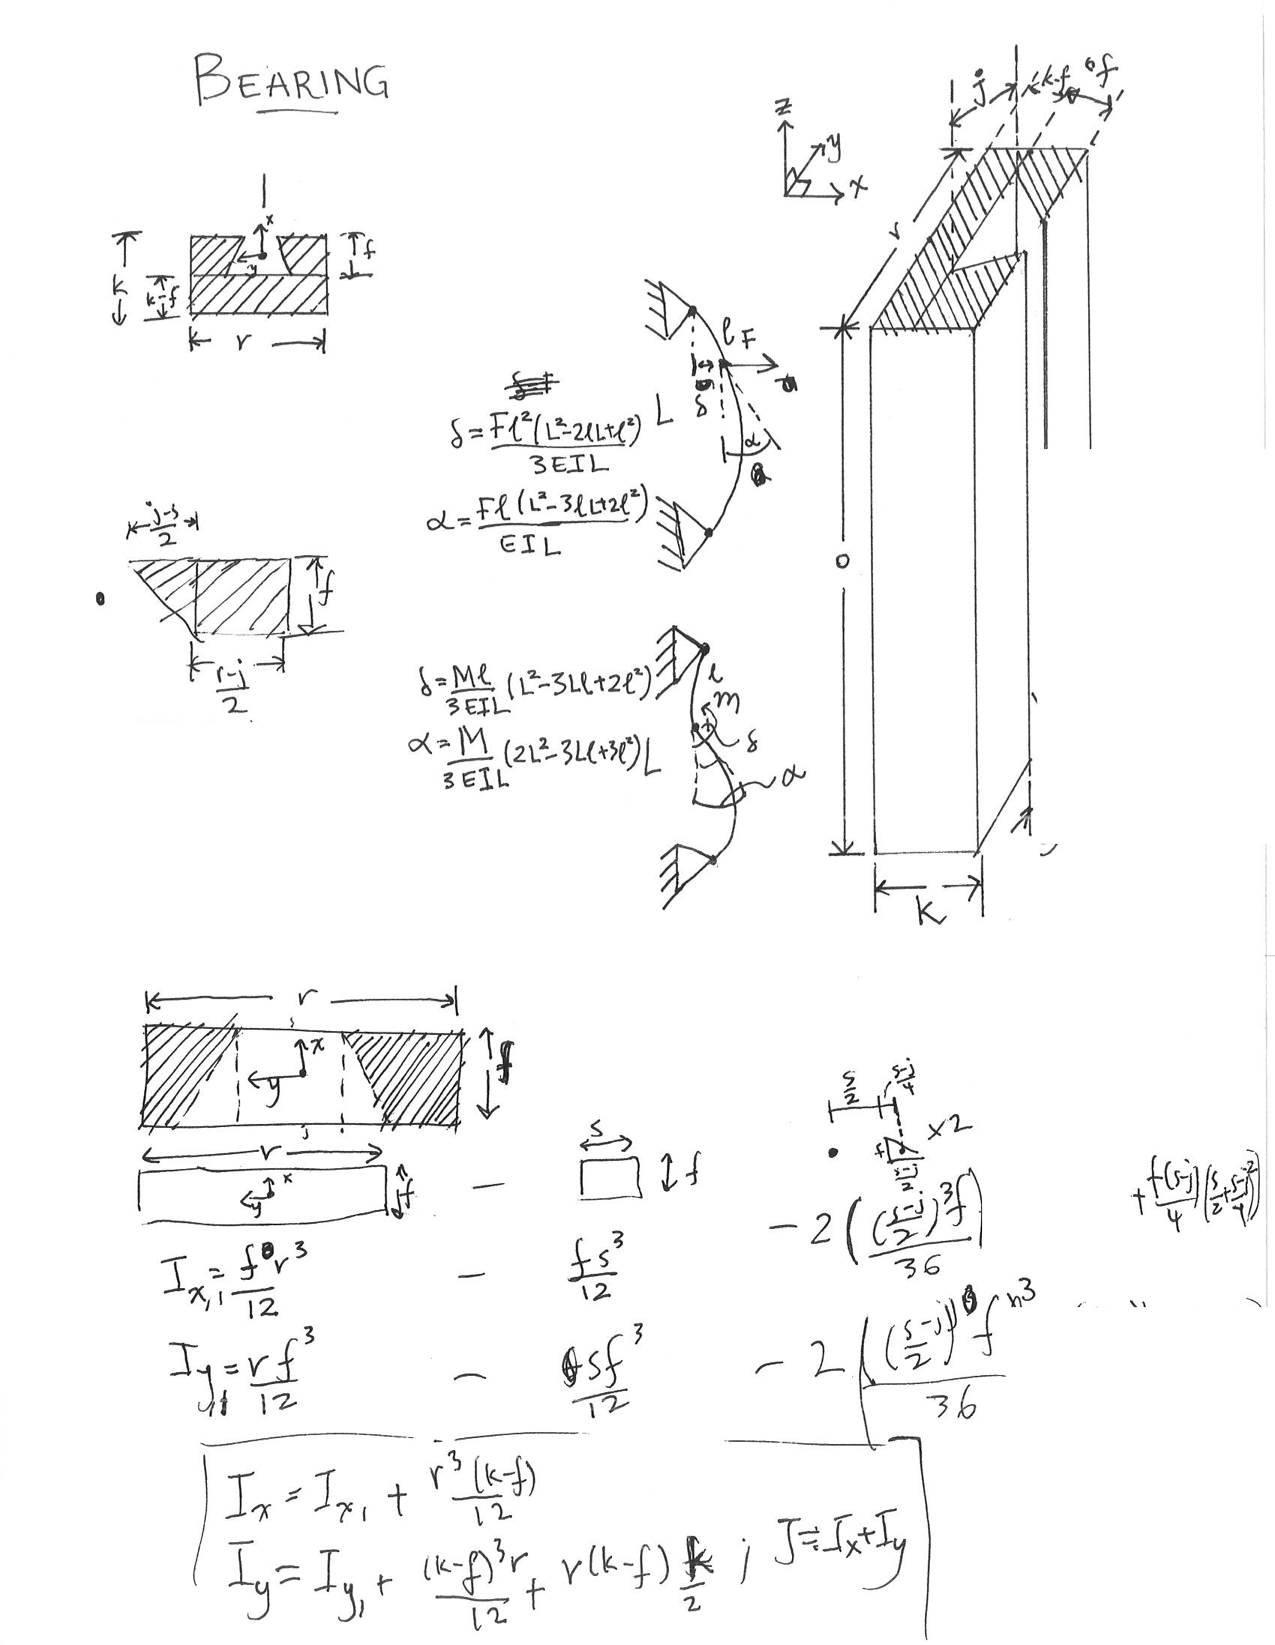 BEARING
z
y
x
j
k-f
f
r
x
y
k
k-f
f
r
l F
δ
L
α
δ = Fl²(L²-2lL+l²) / 3EIL
α = Fl(L²-3lL+2l²) / EIL
o
j-s / 2
f
r-j / 2
l
m
δ
α
δ = Ml / 3EIL (L²-3Ll+2l²)
α = M / 3EIL (2L²-3Ll+3l²) L
k
r
x
y
f
j
r
x
y
f
-
s
f
s/2
s-j / 4
f
s-j / 2
x2
Ix,1 = f r³ / 12 - fs³ / 12 - 2( (s-j / 2)³ f / 36 + f(s-j) / 4 (s/2 + s-j / 4)² )
Iy,1 = r f³ / 12 - sf³ / 12 - 2( (s-j / 2) f³ / 36
Ix = Ix,1 + r³(k-f) / 12
Iy = Iy,1 + (k-f)³r / 12 + r(k-f) k/2 ; J = Ix+Iy